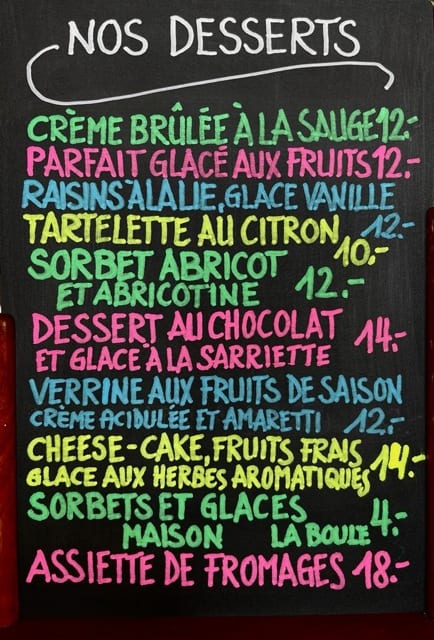 NOS DESSERTS
CRÈME BRÛLÉE À LA SAUGE 12.-
PARFAIT GLACÉ AUX FRUITS 12.-
RAISINS À LA LIE, GLACE VANILLE
12.-
TARTELETTE AU CITRON
10.-
SORBET ABRICOT
ET ABRICOTINE 12.-
DESSERT AU CHOCOLAT
14.-
ET GLACE À LA SARRIETTE
VERRINE AUX FRUITS DE SAISON
CRÈME ACIDULÉE ET AMARETTI 12.-
CHEESE-CAKE, FRUITS FRAIS
14.-
GLACE AUX HERBES AROMATIQUES
SORBETS ET GLACES
4.-
MAISON LA BOULE
ASSIETTE DE FROMAGES 18.-